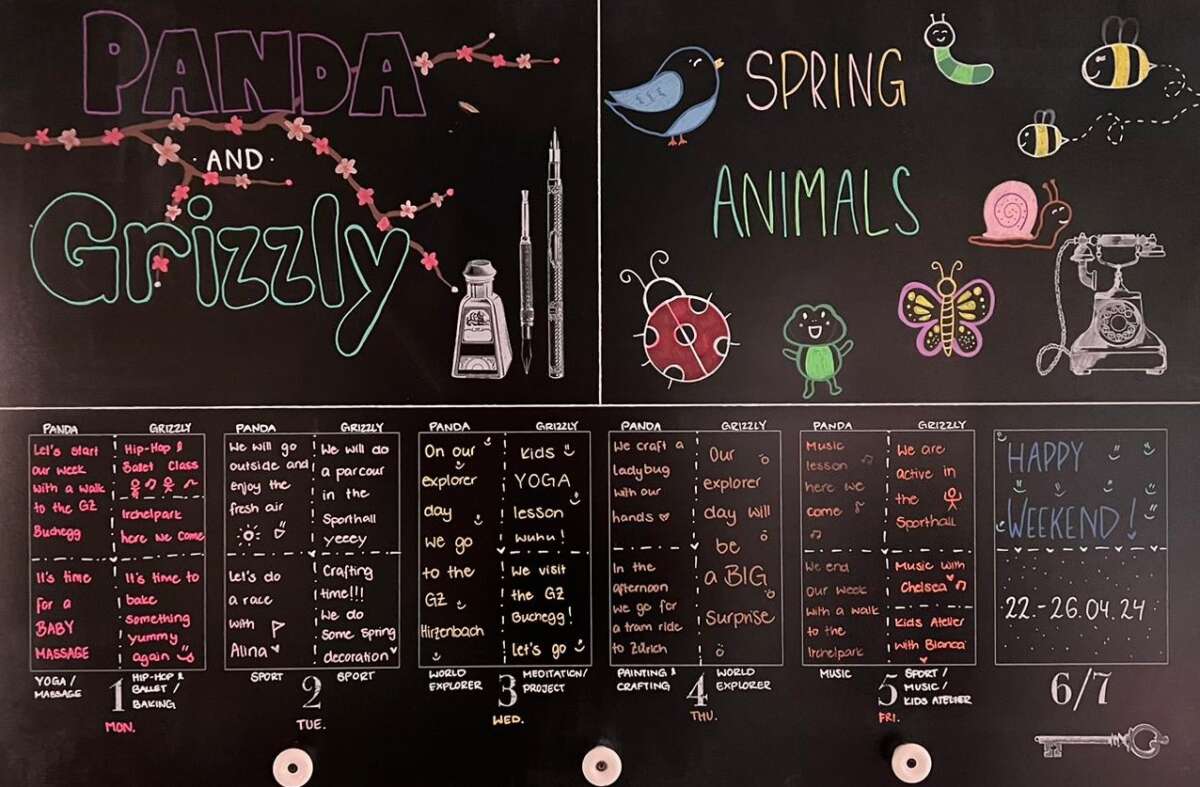 PANDA
·AND·
Grizzly
SPRING
ANIMALS
PANDA
Let's start
our week
with a walk
to the GZ
Buchegg
It's time
for a
BABY
MASSAGE
YOGA /
MASSAGE
GRIZZLY
Hip-Hop &
Ballet Class
Irchelpark
here we come
It's time to
bake
something
yummy
again
HIP-HOP &
BALLET /
BAKING
1
MON.
PANDA
We will go
outside and
enjoy the
fresh air
Let's do
a race
with
Alina
SPORT
GRIZZLY
We will do
a parcour
in the
Sporthall
yeeey
Crafting
time!!!
We do
some Spring
decoration
SPORT
2
TUE.
PANDA
On our
explorer
day
we go
to the
GZ
Hirzenbach
WORLD
EXPLORER
GRIZZLY
Kids
YOGA
lesson
wuhu!
We visit
the GZ
Buchegg!
Let's go
MEDITATION/
PROJECT
3
WED.
PANDA
We craft a
ladybug
with our
hands
In the
afternoon
we go for
a tram ride
to Zürich
PAINTING &
CRAFTING
GRIZZLY
Our
explorer
day will
be
a BIG
Surprise
WORLD
EXPLORER
4
THU.
PANDA
Music
lesson
here we
come
We end
our week
with a walk
to the
Irchelpark
MUSIC
GRIZZLY
We are
active in
the
Sporthall
Music with
Chelsea
Kids Atelier
with Bianca
SPORT /
MUSIC /
KIDS ATELIER
5
FRI.
HAPPY
WEEKEND!
22.-26.04.24
6/7